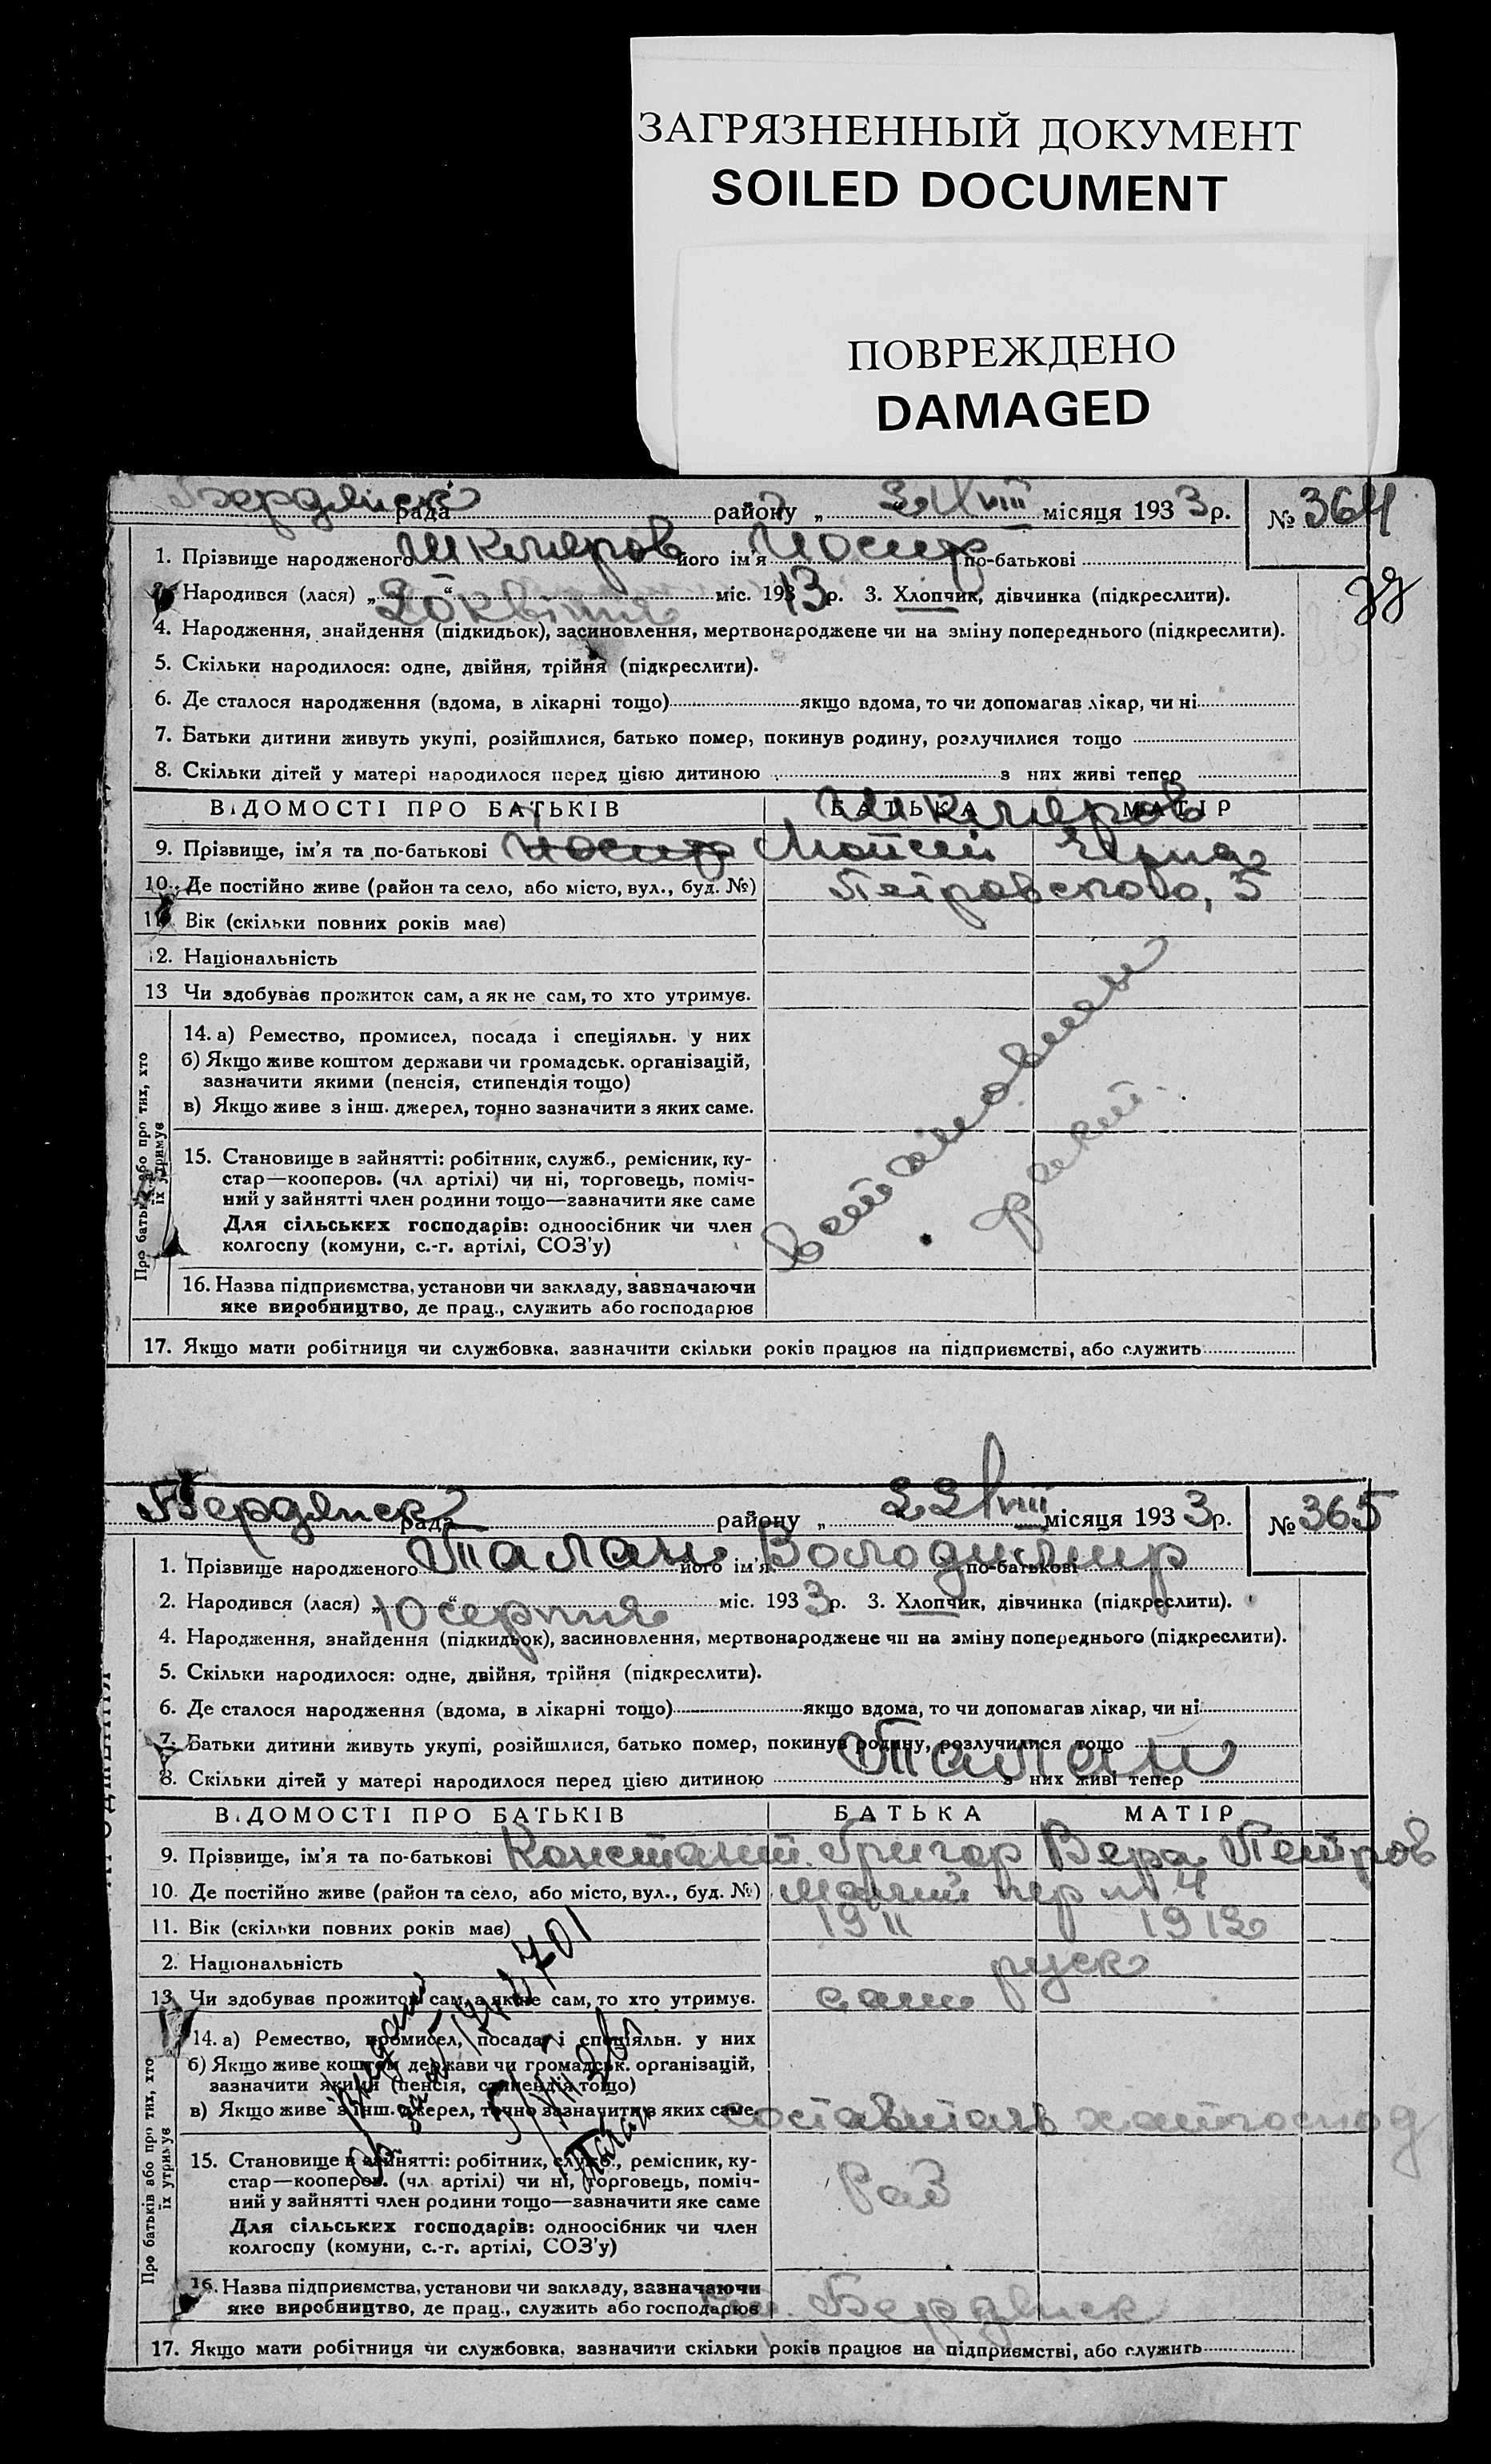 ЗАГРЯЗНЕННЫЙ ДОКУМЕНТ
SOILED DOCUMENT
ПОВРЕЖДЕНО
DAMAGED
Бердянск рада району „ VIII місяця 1933 р. № 364
1. Прізвище народженого Шкляров його ім'я Йосиф по-батькові
Народився (лася) „20“ квітня міс. 1913 р. 3. Хлопчик, дівчинка (підкреслити).
4. Народження, знайдення (підкидьок), засиновлення, мертвонароджене чи на зміну попереднього (підкреслити).
5. Скільки народилося: одне, двійня, трійня (підкреслити).
6. Де сталося народження (вдома, в лікарні тощо) якщо вдома, то чи допомагав лікар, чи ні
7. Батьки дитини живуть укупі, розійшлися, батько помер, покинув родину, розлучилися тощо
8. Скільки дітей у матері народилося перед цією дитиною з них живі тепер
ВІДОМОСТІ ПРО БАТЬКІВ БАТЬКА МАТІР
Шкляров
9. Прізвище, ім'я та по-батькові Йосиф Мойсей
10. Де постійно живе (район та село, або місто, вул., буд. №) Петровского, 5
11. Вік (скільки повних років має)
12. Національність
13 Чи здобуває прожиток сам, а як не сам, то хто утримує.
Про батьків або про тих, хто їх утримує
14. а) Ремество, промисел, посада і спеціяльн. у них
б) Якщо живе коштом держави чи громадськ. організацій,
зазначити якими (пенсія, стипендія тощо)
в) Якщо живе з інш. джерел, точно зазначити з яких саме.
15. Становище в зайнятті: робітник, служб., ремісник, ку-
стар—кооперов. (чл артілі) чи ні, торговець, поміч-
ний у зайнятті член родини тощо—зазначити яке саме
Для сільських господарів: одноосібник чи член
колгоспу (комуни, с.-г. артілі, СОЗ'у)
16. Назва підприємства, установи чи закладу, зазначаючи
яке виробництво, де прац., служить або господарює
17. Якщо мати робітниця чи службовка, зазначити скільки років працює на підприємстві, або служить
Бердянск рада району „ 22 VIII місяця 1933 р. № 365
1. Прізвище народженого Талан його ім'я Володимир по-батькові
2. Народився (лася) „10“ серпня міс. 1933 р. 3. Хлопчик, дівчинка (підкреслити).
4. Народження, знайдення (підкидьок), засиновлення, мертвонароджене чи на зміну попереднього (підкреслити).
5. Скільки народилося: одне, двійня, трійня (підкреслити).
6. Де сталося народження (вдома, в лікарні тощо) якщо вдома, то чи допомагав лікар, чи ні
7. Батьки дитини живуть укупі, розійшлися, батько помер, покинув родину, розлучилися тощо
Талан
8. Скільки дітей у матері народилося перед цією дитиною з них живі тепер
ВІДОМОСТІ ПРО БАТЬКІВ БАТЬКА МАТІР
9. Прізвище, ім'я та по-батькові Констант. Григор Вера Петров
10. Де постійно живе (район та село, або місто, вул., буд. №) пер № 4
11. Вік (скільки повних років має) 1911 1912
2. Національність руск
13. Чи здобуває прожиток сам, а як не сам, то хто утримує. сам
Про батьків або про тих, хто їх утримує
14. а) Ремество, промисел, посада і спеціяльн. у них
б) Якщо живе коштом держави чи громадськ. організацій,
зазначити якими (пенсія, стипендія тощо)
в) Якщо живе з інш. джерел, точно зазначити з яких саме. составитель
15. Становище в зайнятті: робітник, служб., ремісник, ку-
стар—кооперов. (чл артілі) чи ні, торговець, поміч-
ний у зайнятті член родини тощо—зазначити яке саме
Для сільських господарів: одноосібник чи член
колгоспу (комуни, с.-г. артілі, СОЗ'у)
Роб
16. Назва підприємства, установи чи закладу, зазначаючи
яке виробництво, де прац., служить або господарює ст. Бердянск
17. Якщо мати робітниця чи службовка, зазначити скільки років працює на підприємстві, або служить